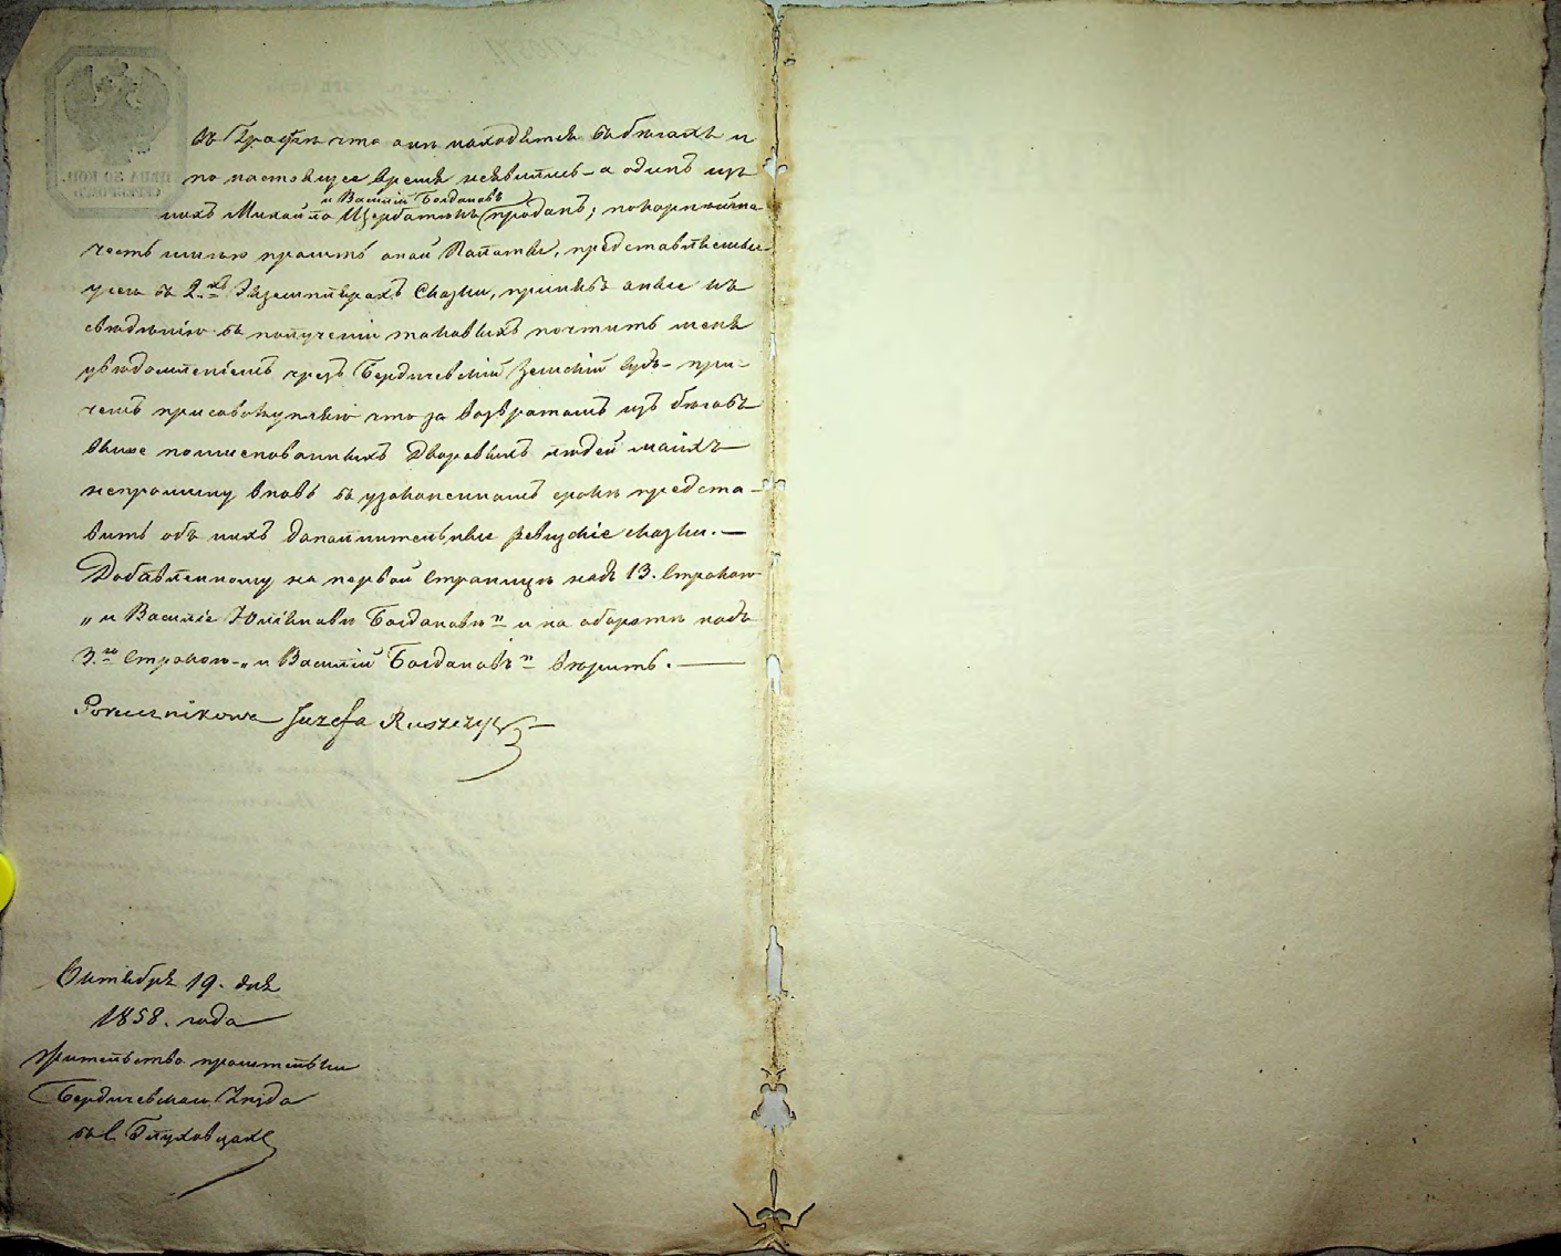 въ Графѣ что они находятся въ бѣгахъ и
по настоящее время неявились – а одинъ изъ
и Василій Богдановъ
нихъ Михайло Щербатюкъ проданъ; покорнѣйше
честь имѣю просить оной Палаты, представляемыя
при семъ въ 2.хъ Экземплярахъ Сказки, принявъ оныя къ
свѣдѣнію въ полученіи таковыхъ почтить меня
увѣдомленіемъ чрезъ Бердичевскій Земскій Судъ – при-
чемъ присовокупляю что за возвратомъ изъ бѣговъ
выше поименованныхъ Дворовыхъ людей моихъ
непремину вновь въ узаконенномъ срокѣ предста-
вить объ нихъ дополнительныя ревизскіе сказки. —
Добавленному на первой Страницѣ надъ 13. Строкою
„и Василіе Юліановѣ Богдановѣ" и на оборотѣ надъ
3.ю Строкою – „и Василій Богдановъ" вѣрить. —
Porucznikowa Juzefa Ruszczyc
Октября 19. дня
1858. года
Жительство просительки
Бердичевскаго Уѣзда
въ С. Глуховцахъ
ЦѢНА 30 КОП.
СЕРЕБРОМЪ